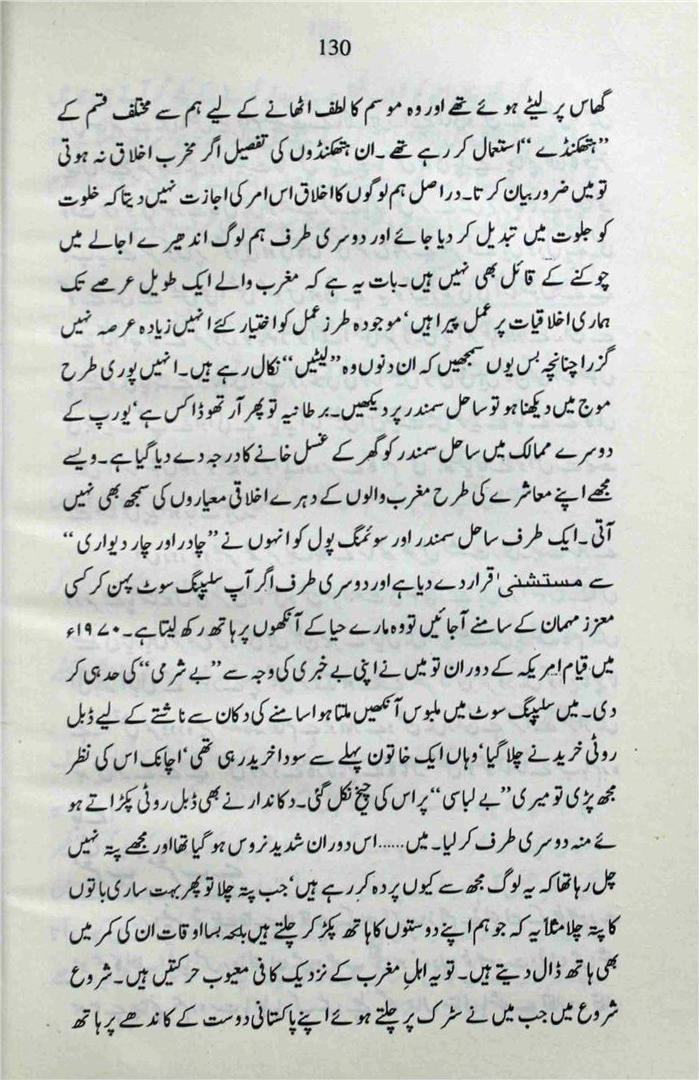 130
گھاس پر لیٹے ہوئے تھے اور وہ موسم کا لطف اٹھانے کے لیے ہم سے مختلف قسم کے
”ہتھکنڈے“ استعمال کر رہے تھے۔ ان ہتھکنڈوں کی تفصیل اگر مخرب اخلاق نہ ہوتی
تو میں ضرور بیان کرتا۔ دراصل ہم لوگوں کا اخلاق اس امر کی اجازت نہیں دیتا کہ خلوت
کو جلوت میں تبدیل کر دیا جائے اور دوسری طرف ہم لوگ اندھیرے اجالے میں
چوکنے کے قائل بھی نہیں ہیں۔ بات یہ ہے کہ مغرب والے ایک طویل عرصے تک
ہماری اخلاقیات پر عمل پیرا ہیں‘ موجودہ طرز عمل کو اختیار کئے انہیں زیادہ عرصہ نہیں
گزرا چنانچہ بس یوں سمجھیں کہ ان دنوں وہ ”لیٹیں“ نکال رہے ہیں۔ انہیں پوری طرح
موج میں دیکھنا ہو تو ساحل سمندر پر دیکھیں۔ برطانیہ تو پھر آرتھوڈاکس ہے‘ یورپ کے
دوسرے ممالک میں ساحل سمندر کو گھر کے غسل خانے کا درجہ دے دیا گیا ہے۔ ویسے
مجھے اپنے معاشرے کی طرح مغرب والوں کے دہرے اخلاقی معیاروں کی سمجھ بھی نہیں
آتی۔ ایک طرف ساحل سمندر اور سوئمنگ پول کو انہوں نے ”چادر اور چار دیواری“
سے مستشنیٰ قرار دے دیا ہے اور دوسری طرف اگر آپ سلیپنگ سوٹ پہن کر کسی
معزز مہمان کے سامنے آ جائیں تو وہ مارے حیا کے آنکھوں پر ہاتھ رکھ لیتا ہے۔ ۱۹۷۰ء
میں قیام امریکہ کے دوران تو میں نے اپنی بے خبری کی وجہ سے ”بے شرمی“ کی حد ہی کر
دی۔ میں سلیپنگ سوٹ میں ملبوس آنکھیں ملتا ہوا سامنے کی دکان سے ناشتے کے لیے ڈبل
روٹی خریدنے چلا گیا‘ وہاں ایک خاتون پہلے سے سودا خرید رہی تھی‘ اچانک اس کی نظر
مجھ پڑی تو میری ”بے لباسی“ پر اس کی چیخ نکل گئی۔ دکاندار نے بھی ڈبل روٹی پکڑاتے ہو
ئے منہ دوسری طرف کر لیا۔ میں...... اس دوران شدید نروس ہو گیا تھا اور مجھے پتہ نہیں
چل رہا تھا کہ یہ لوگ مجھ سے کیوں پردہ کر رہے ہیں‘ جب پتہ چلا تو پھر بہت ساری باتوں
کا پتہ چلا مثلاً یہ کہ جو ہم اپنے دوستوں کا ہاتھ پکڑ کر چلتے ہیں بلکہ بسا اوقات ان کی کمر میں
بھی ہاتھ ڈال دیتے ہیں۔ تو یہ اہلِ مغرب کے نزدیک کافی معیوب حرکتیں ہیں۔ شروع
شروع میں جب میں نے سڑک پر چلتے ہوئے اپنے پاکستانی دوست کے کاندھے پر ہاتھ